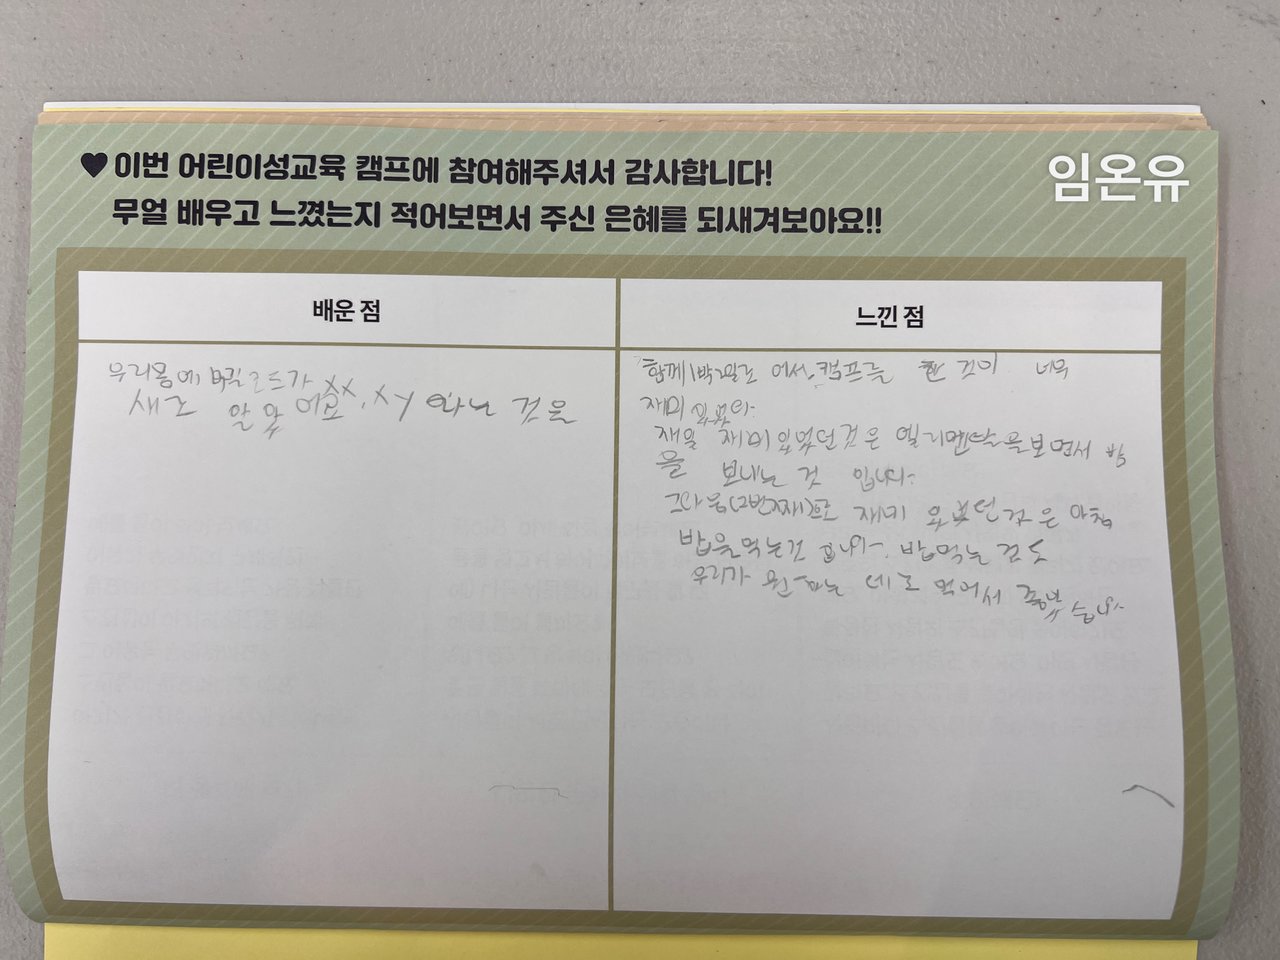 ♥이번 어린이성교육 캠프에 참여해주셔서 감사합니다!
무얼 배우고 느꼈는지 적어보면서 주신 은혜를 되새겨보아요!!
임온유
배운 점
우리몸에 코드가 XX, XY 라는 것을
새로 알았어요.
느낀 점
함께 1박2일로 캠프를 한 것이 너무
재미있었다.
재일 재미있었던것은 엘리멘탈을보면서 밤
을 보내는 것 입니다.
그다음(2번째)으로 재미있었던것은 아침
밥을먹는것 입니다. 밥먹는 것도
우리가 원하는 데로 먹어서 좋았습니다.